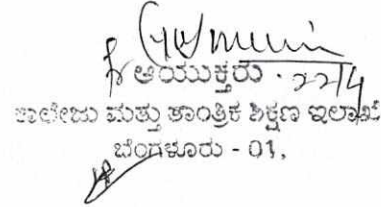 ಆಯುಕ್ತರು 22/4
ಕಾಲೇಜು ಮತ್ತು ತಾಂತ್ರಿಕ ಶಿಕ್ಷಣ ಇಲಾಖೆ
ಬೆಂಗಳೂರು - 01,